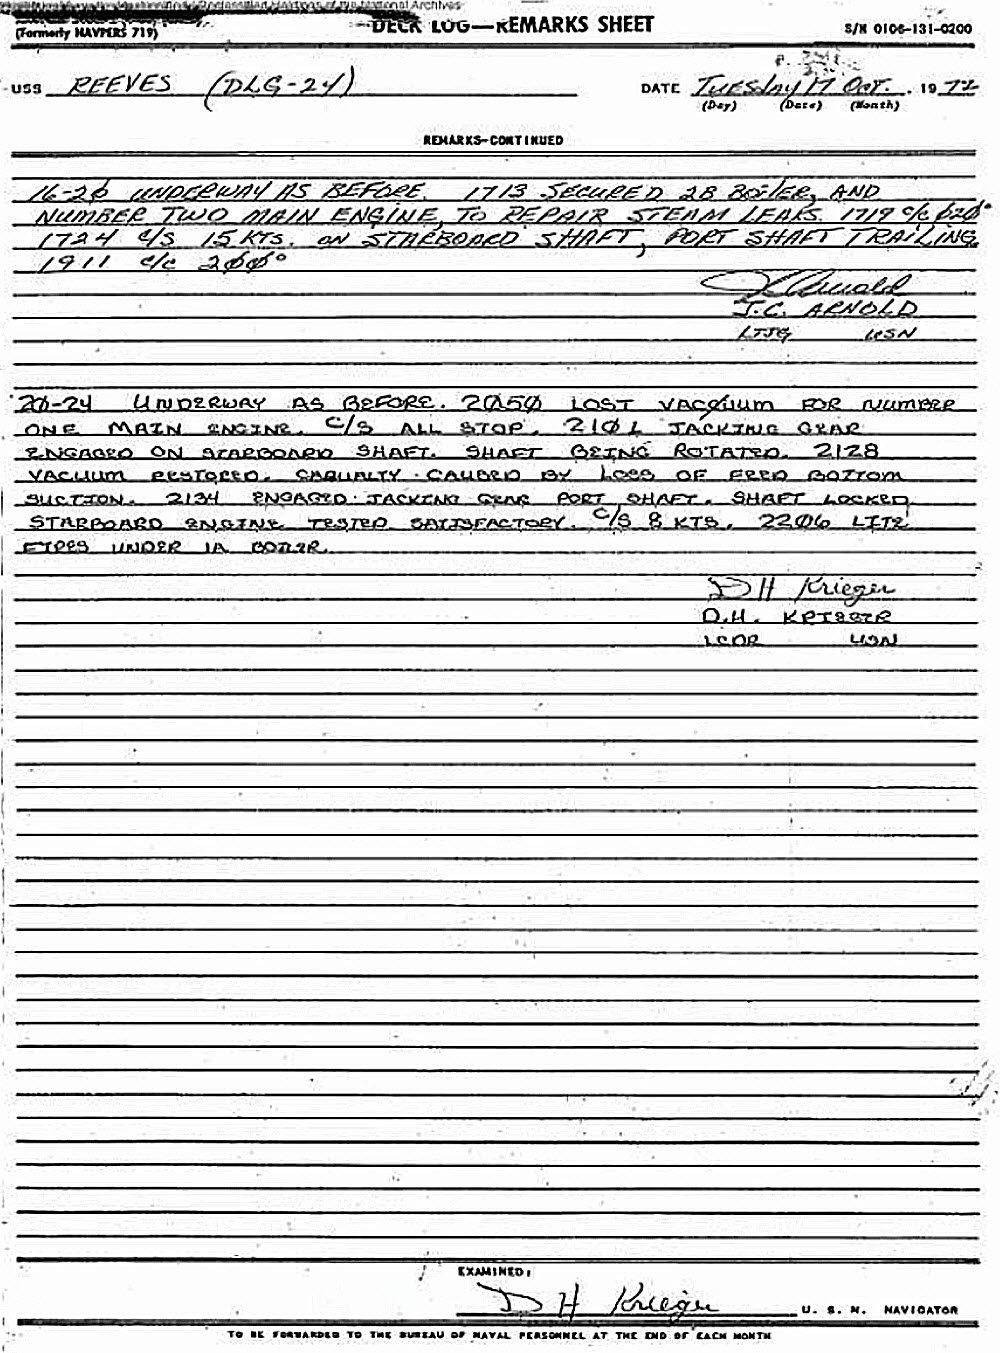 Declassified Holdings of the National Archives
(Formerly NAVPERS 719)
DECK LOG—REMARKS SHEET
S/N 0106-131-0200
USS REEVES (DLG-24)
DATE TUESDAY 17 OCT. 1972
(Day) (Date) (Month)
REMARKS-CONTINUED
16-2Ø UNDERWAY AS BEFORE. 1713 SECURED 2B BOILER, AND
NUMBER TWO MAIN ENGINE, TO REPAIR STEAM LEAKS. 1719 C/C Ø2Ø°
1724 C/S 15 KTS. ON STARBOARD SHAFT, PORT SHAFT TRAILING.
1911 C/C 2ØØ°
J C Arnold
J.C. ARNOLD
LTJG USN
2Ø-24 UNDERWAY AS BEFORE. 2Ø5Ø LOST VACUUM FOR NUMBER
ONE MAIN ENGINE. C/S ALL STOP. 21Ø1 JACKING GEAR
ENGAGED ON STARBOARD SHAFT. SHAFT BEING ROTATED. 2128
VACUUM RESTORED. CASUALTY CAUSED BY LOSS OF FEED BOTTOM
SUCTION. 2134 ENGAGED JACKING GEAR PORT SHAFT. SHAFT LOCKED.
STARBOARD ENGINE TESTED SATISFACTORY. C/S 8 KTS. 22Ø6 LITE
FIRES UNDER 1A BOILER.
D H Krieger
D.H. KRIEGER
LCDR USN
EXAMINED:
D H Krieger
U. S. N. NAVIGATOR
TO BE FORWARDED TO THE BUREAU OF NAVAL PERSONNEL AT THE END OF EACH MONTH